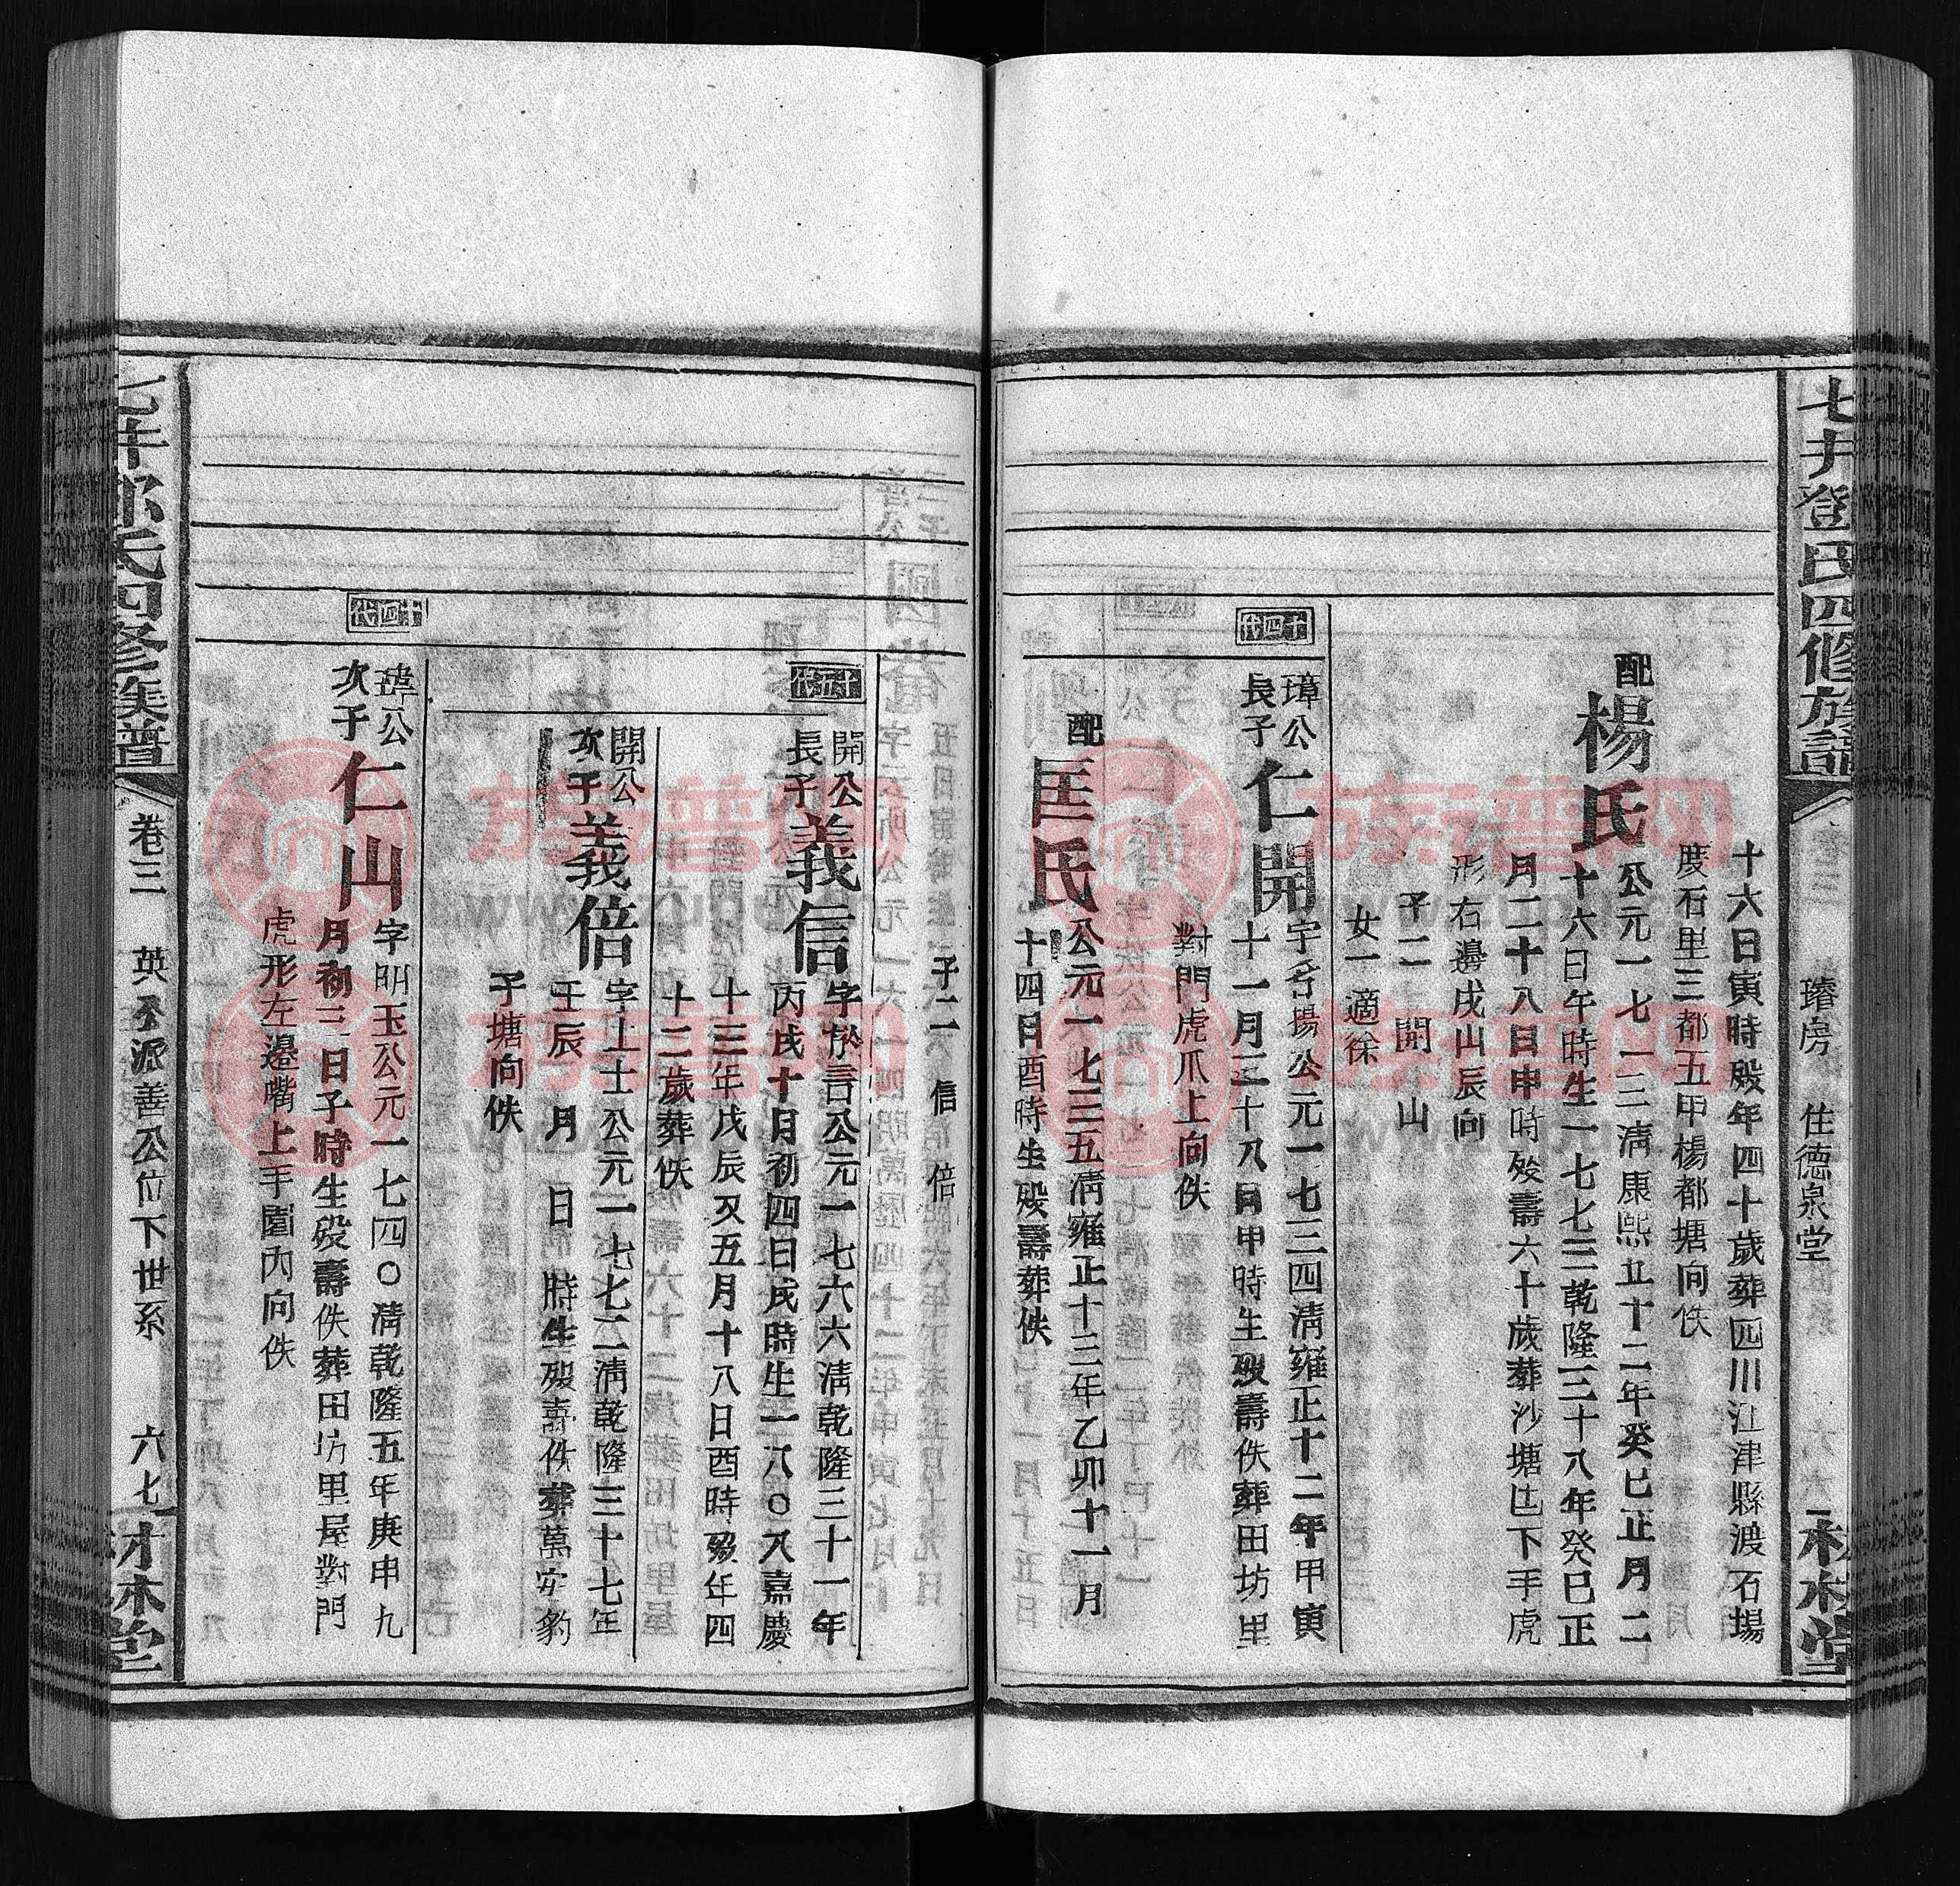 七井鄧氏四修族譜
璿房
住德泉堂
十六日寅時殁年四十歲葬四川江津縣渡石場
度石里三都五甲楊都塘向佚
配楊氏公元一七一三淸康熙五十二年癸巳正月二
十六日午時生一七七三乾隆三十八年癸巳正
月二十八日申時殁壽六十歲葬沙塘凼下手虎
形右邊戌山辰向
子二 開 山
女一適徐
十四代
璋公長子仁開字名揚公元一七三四淸雍正十二年甲寅
十一月二十八日甲時生殁壽佚葬田坊里
對門虎爪上向佚
配匡氏公元一七三五淸雍正十三年乙卯十一月
十四日酉時生殁壽葬佚
子二 信 倍
十五代
開公長子義信字懷言公元一七六六淸乾隆三十一年
丙戌十月初四日戌時生一八〇八嘉慶
十三年戊辰又五月十八日酉時殁年四
十二歲葬佚
開公次子義倍字上士公元一七七二淸乾隆三十七年
壬辰 月 日 時生殁壽佚葬萬安豹
子塘向佚
十四代
璋公次子仁山字明玉公元一七四〇淸乾隆五年庚申九
月初三日子時生殁壽佚葬田坊里屋對門
虎形左邉嘴上手圍內向佚
七井鄧氏四修族譜
卷三
英公派善公位下世系
六七
族谱网
族谱网
族谱网
族谱网